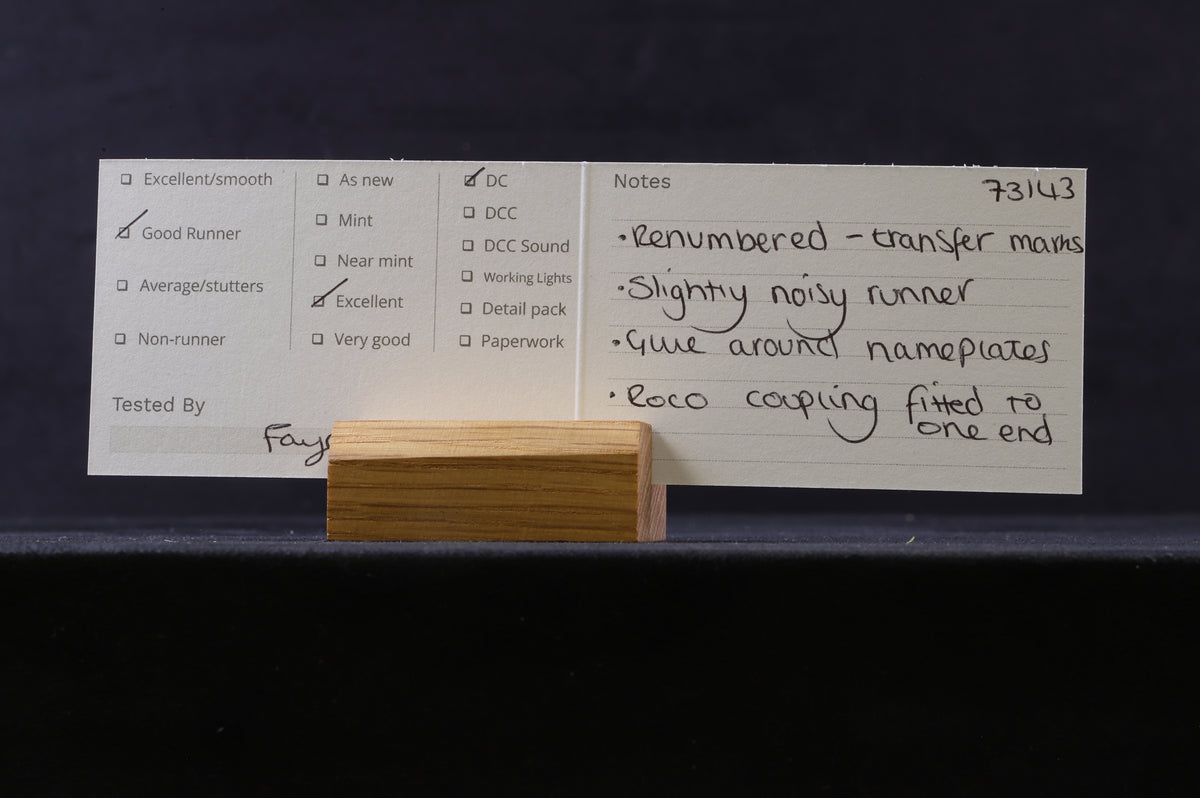 Excellent/smooth
Good Runner
Average/stutters
Non-runner
Tested By
As new
Mint
Near mint
Excellent
Very good
DC
DCC
DCC Sound
Working Lights
Detail pack
Paperwork
Notes
73143
•Renumbered - transfer marks
•Slightly noisy runner
•Glue around nameplates
•Roco coupling fitted to
one end